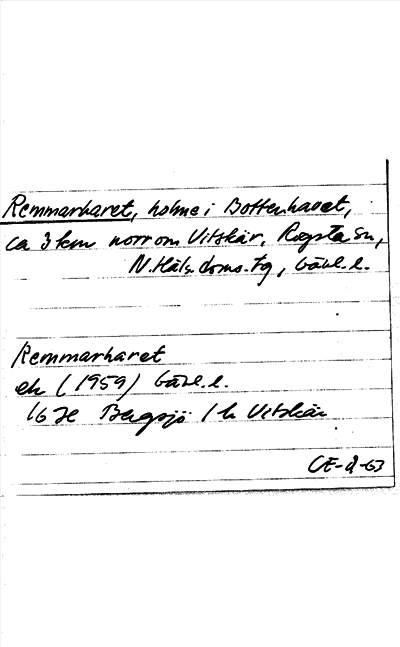 Remmarharet, holme i Bottenhavet,
ca 3 km norr om Vitskär, Rogsta sn,
N. Häls. doms. tg, Gävl. l.
Remmarharet
ek (1959) Gävl. l.
16 Je Bergsjö / h Vitskär
CE-d-63